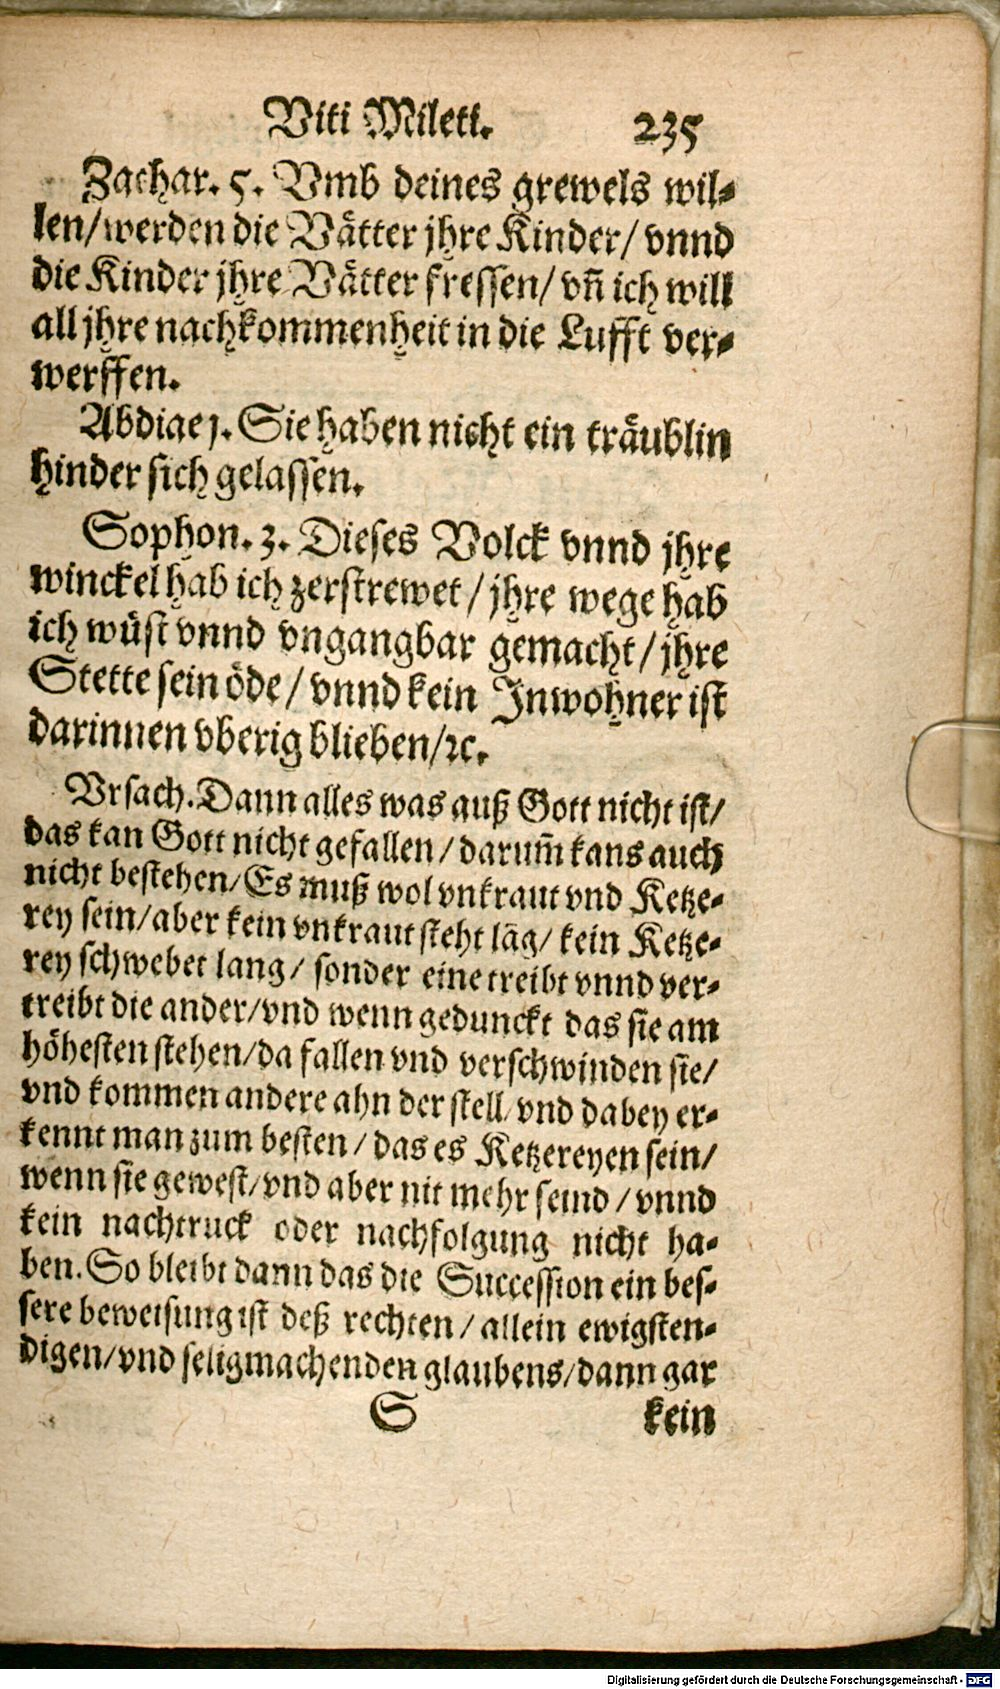 Viti Mileti. 235
Zachar. 5. Vmb deines grewels wil-
len/werden die Vätter jhre Kinder/ vnnd
die Kinder jhre Vätter fressen/ vñ ich will
all jhre nachkommenheit in die Lufft ver-
werffen.
Abdiae 1. Sie haben nicht ein träublin
hinder sich gelassen.
Sophon. 3. Dieses Volck vnnd jhre
winckel hab ich zerstrewet / jhre wege hab
ich wüst vnnd vngangbar gemacht / jhre
Stette sein öde / vnnd kein Inwohner ist
darinnen vberig blieben/ꝛc.
Vrsach. Dann alles was auß Gott nicht ist/
das kan Gott nicht gefallen / darum̃ kans auch
nicht bestehen/ Es muß wol vnkraut vnd Ketze-
rey sein/ aber kein vnkraut steht lãg/ kein Ketze-
rey schwebet lang/ sonder eine treibt vnnd ver-
treibt die ander/vnd wenn gedunckt das sie am
höhesten stehen/da fallen vnd verschwinden sie/
vnd kommen andere ahn der stell/ vnd dabey er-
kennt man zum besten / das es Ketzereyen sein/
wenn sie gewest/ vnd aber nit mehr seind / vnnd
kein nachtruck oder nachfolgung nicht ha-
ben. So bleibt dann das die Succession ein bes-
sere beweisung ist deß rechten / allein ewigsten-
digen/ vnd seligmachenden glaubens/dann gar
S kein
Digitalisierung gefördert durch die Deutsche Forschungsgemeinschaft - DFG